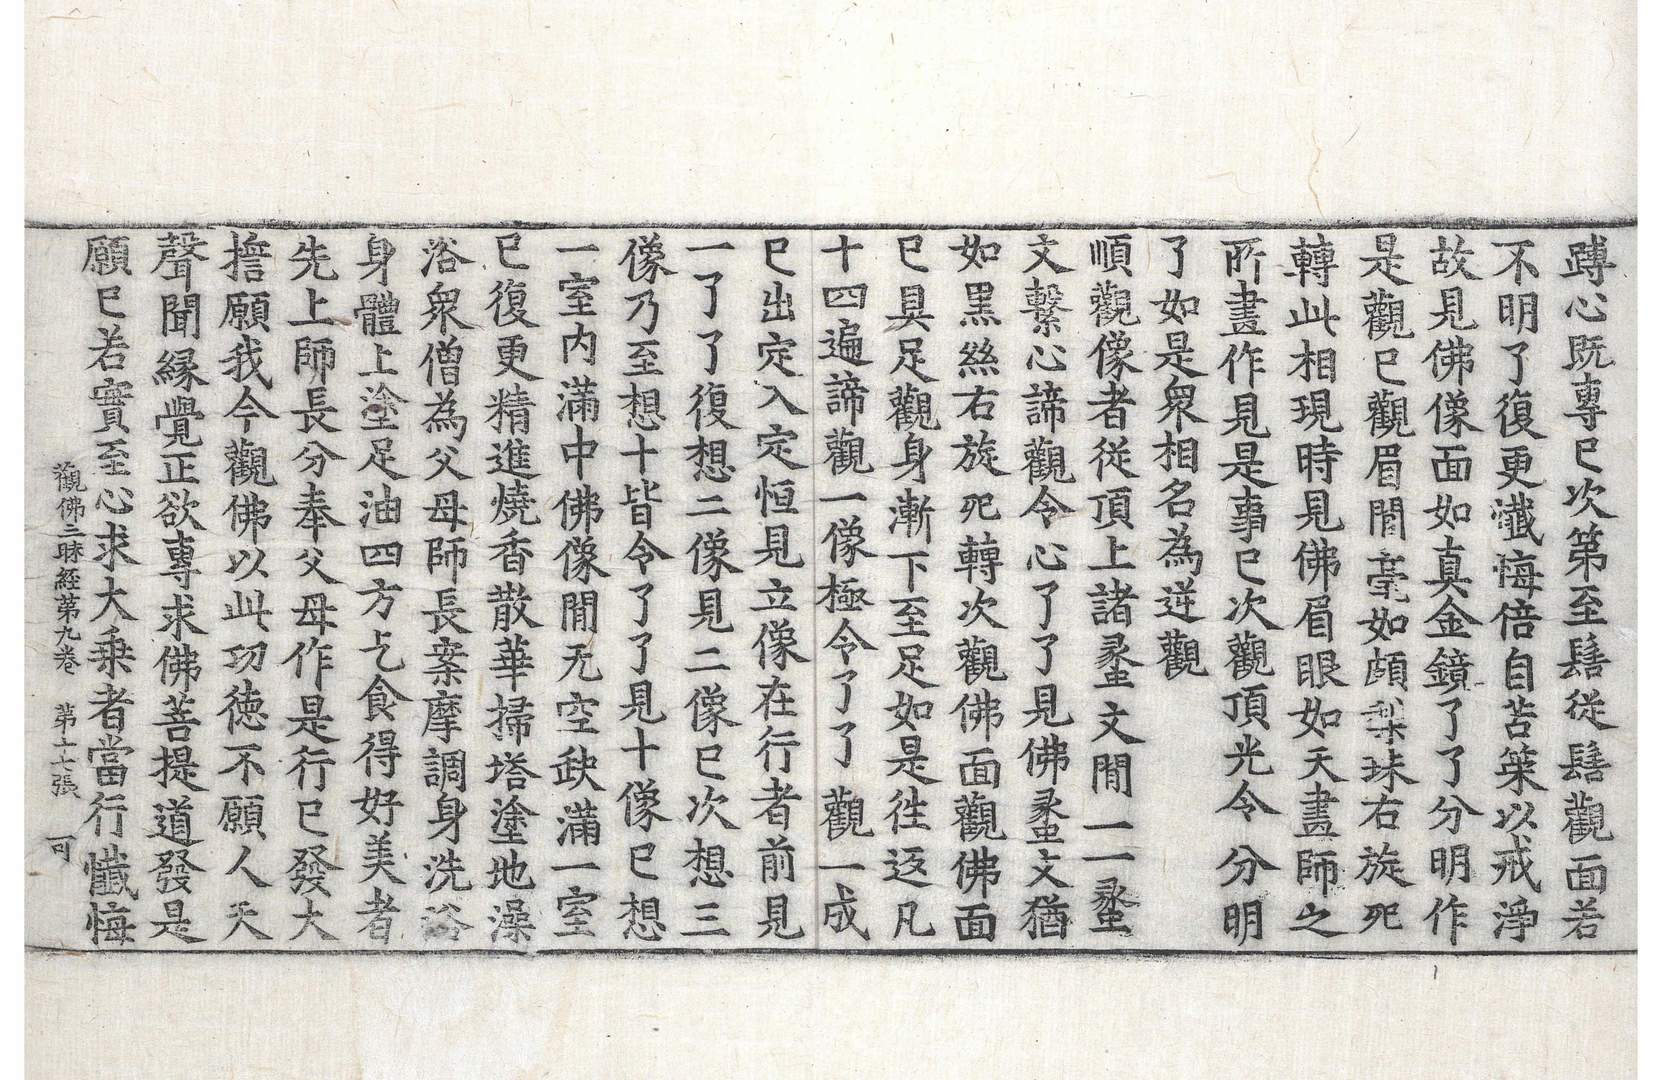 蹲心既專已次第至髻從髻觀面若
不明了復更懺悔倍自苦策以戒淨
故見佛像面如真金鏡了了分明作
是觀已觀眉閒毫如頗梨珠右旋宛
轉此相現時見佛眉眼如天畫師之
所畫作見是事已次觀頂光令分明
了如是衆相名為逆觀
順觀像者從頂上諸蠡文閒一一蠡
文繫心諦觀令心了了見佛蠡文猶
如黑絲右旋宛轉次觀佛面觀佛面
已具足觀身漸下至足如是往返凡
十四遍諦觀一像極令了了觀一成
已出定入定恒見立像在行者前見
一了了復想二像見二像已次想三
像乃至想十皆令了了見十像已想
一室内滿中佛像閒无空缺滿一室
已復更精進燒香散華掃塔塗地澡
浴衆僧為父母師長案摩調身洗浴
身體上塗足油四方乞食得好美者
先上師長分奉父母作是行已發大
擔願我今觀佛以此功德不願人天
聲聞緣覺正欲專求佛菩提道發是
願已若實至心求大乗者當行懺悔
觀佛三昧経第九卷 第十七張 可